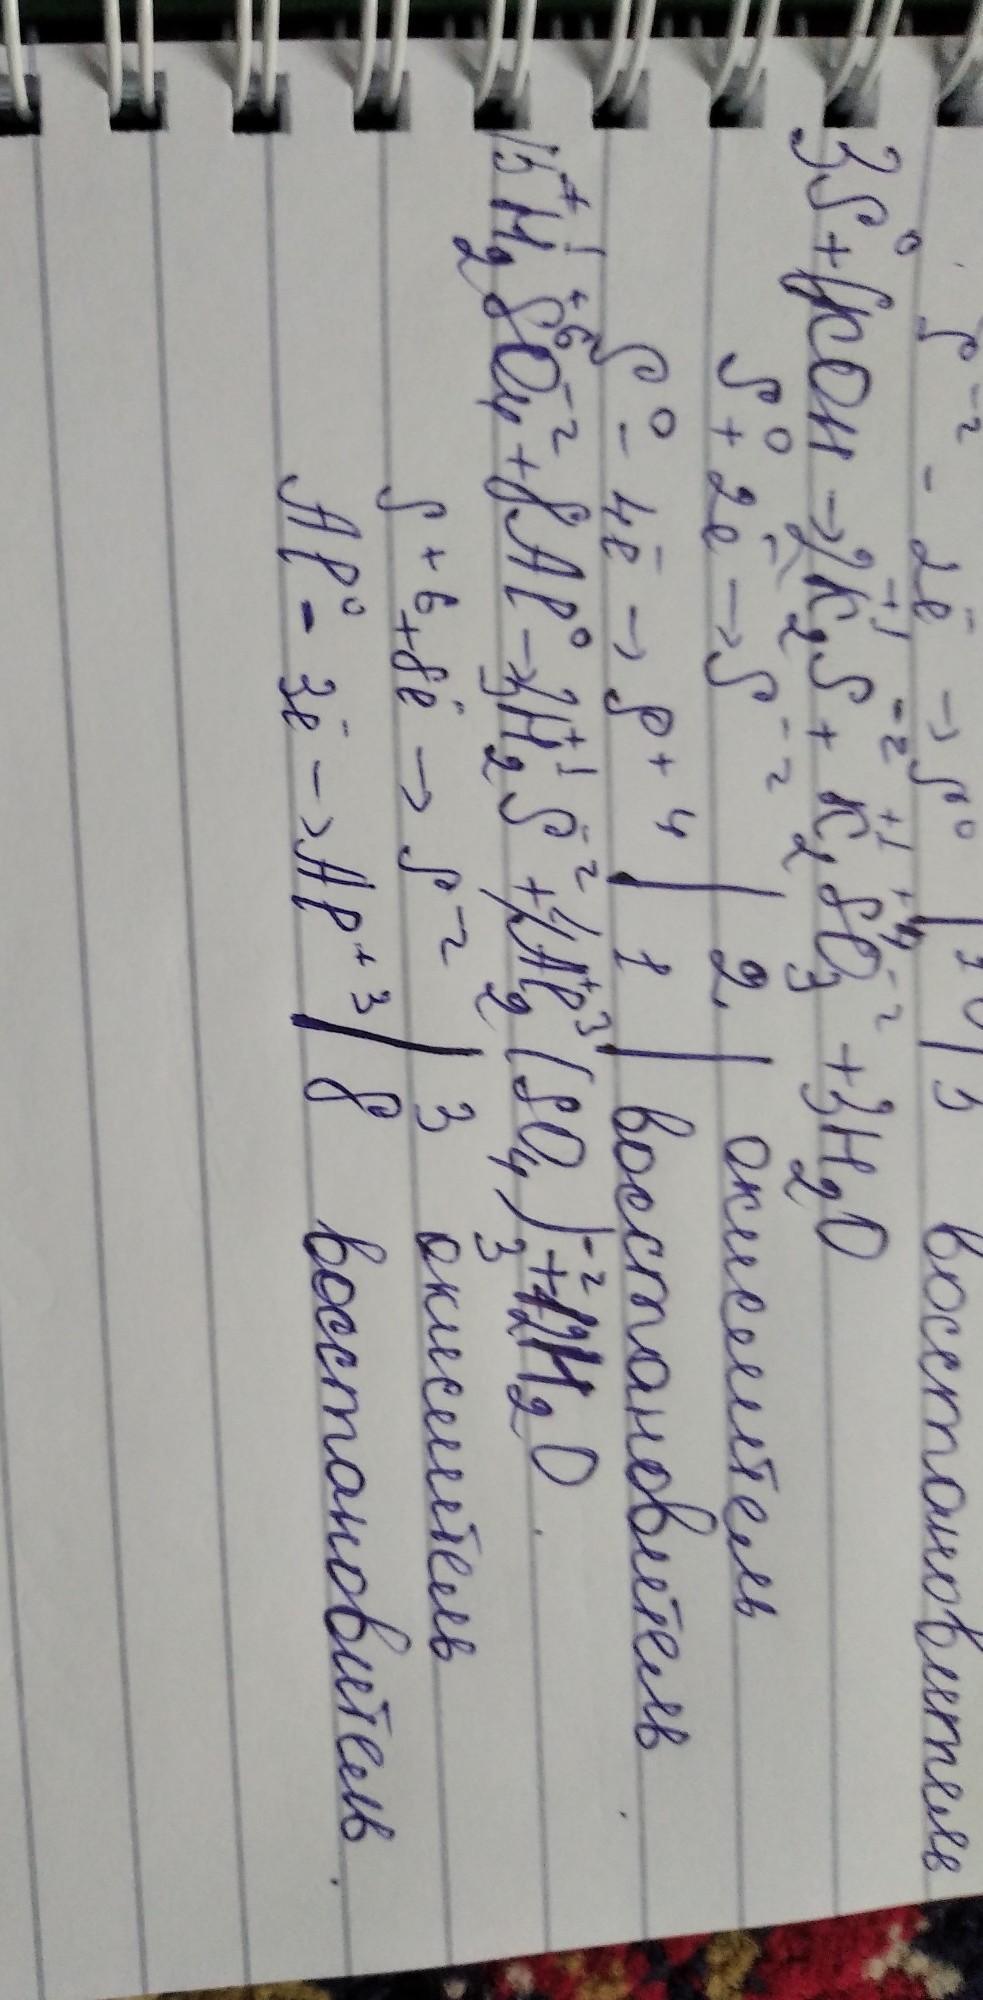 S⁻² - 2ē → S⁰ | 1 восстановитель
3S⁰ + 6KOH → 2K₂⁺¹S⁻² + K₂⁺¹S⁺⁴O₃⁻² + 3H₂O
S⁰ + 2ē → S⁻² | 2 | окислитель
S⁰ - 4ē → S⁺⁴ | 1 | восстановитель
15H₂⁺¹S⁺⁶O₄⁻² + 8Al⁰ → 3H₂⁺¹S⁻² + 4Al₂⁺³(SO₄)₃⁻² + 12H₂O
S⁺⁶ + 8ē → S⁻² | 3 окислитель
Al⁰ - 3ē → Al⁺³ | 8 восстановитель